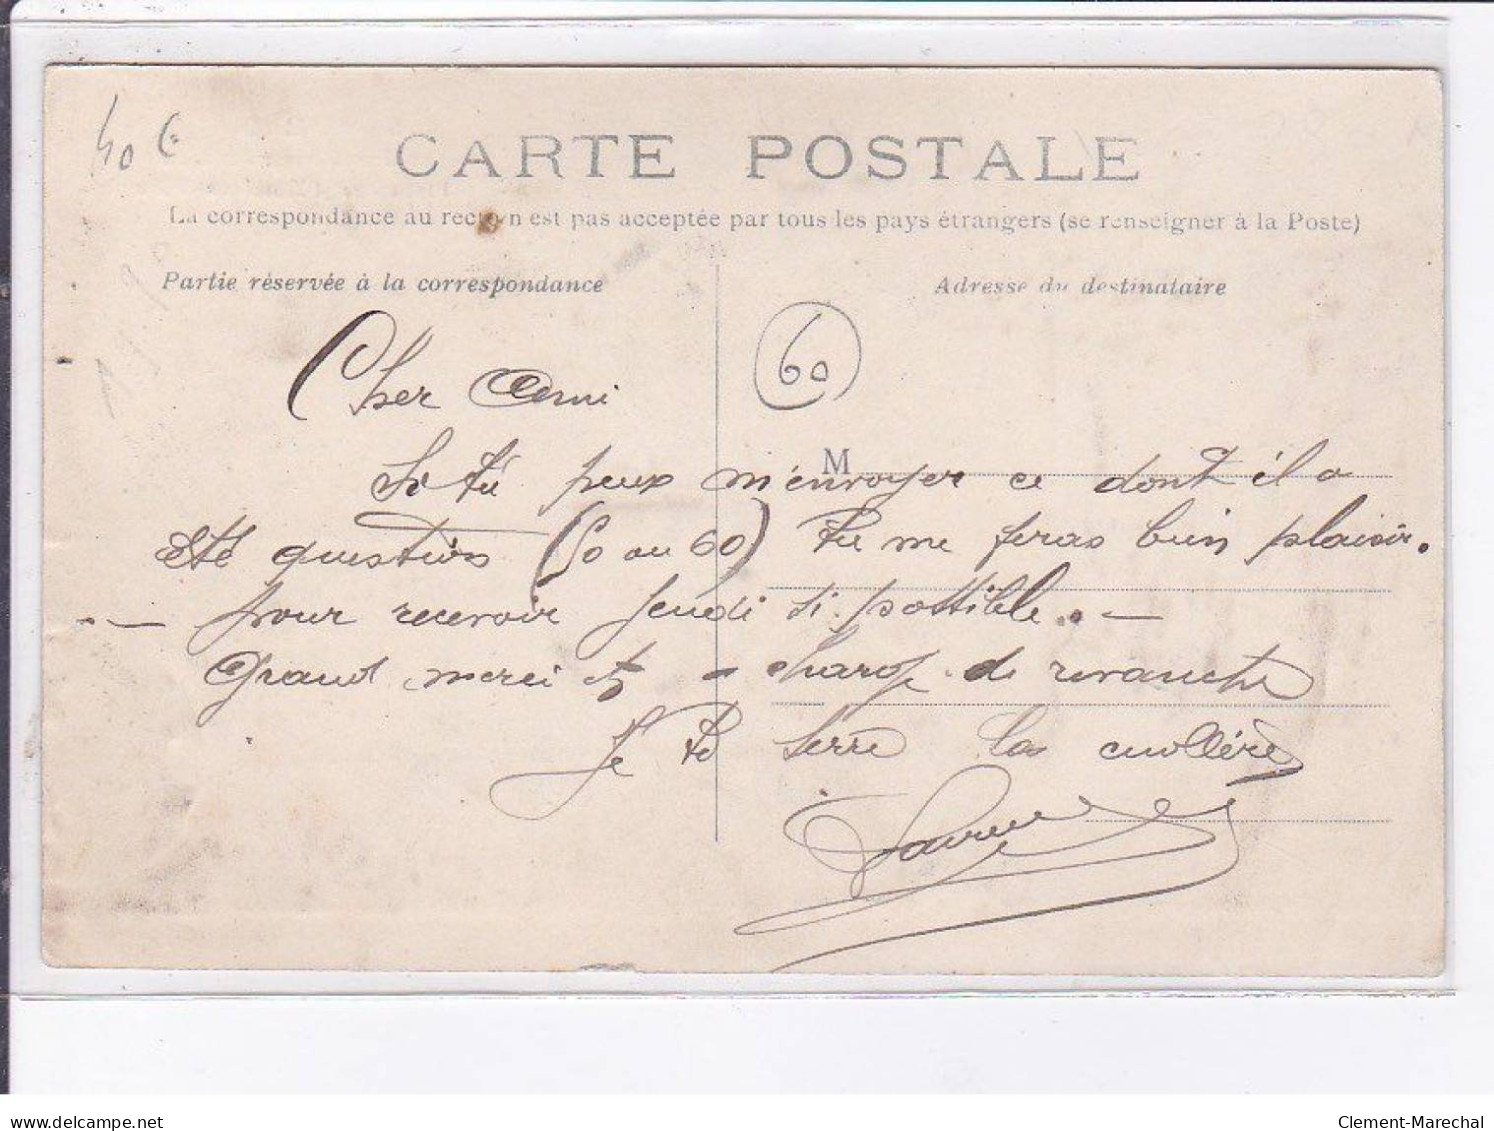 40 €
CARTE POSTALE
La correspondance au recto n'est pas acceptée par tous les pays étrangers (se renseigner à la Poste)
Partie réservée à la correspondance
Adresse du destinataire
60
Cher Ami
M
Si tu peux m'envoyer ce dont il a
été question (50 ou 60) tu me feras bien plaisir.
pour recevoir jeudi si possible. —
Grand merci et - charge de revanche
Je te serre la
delcampe.net
Clement-Marechal